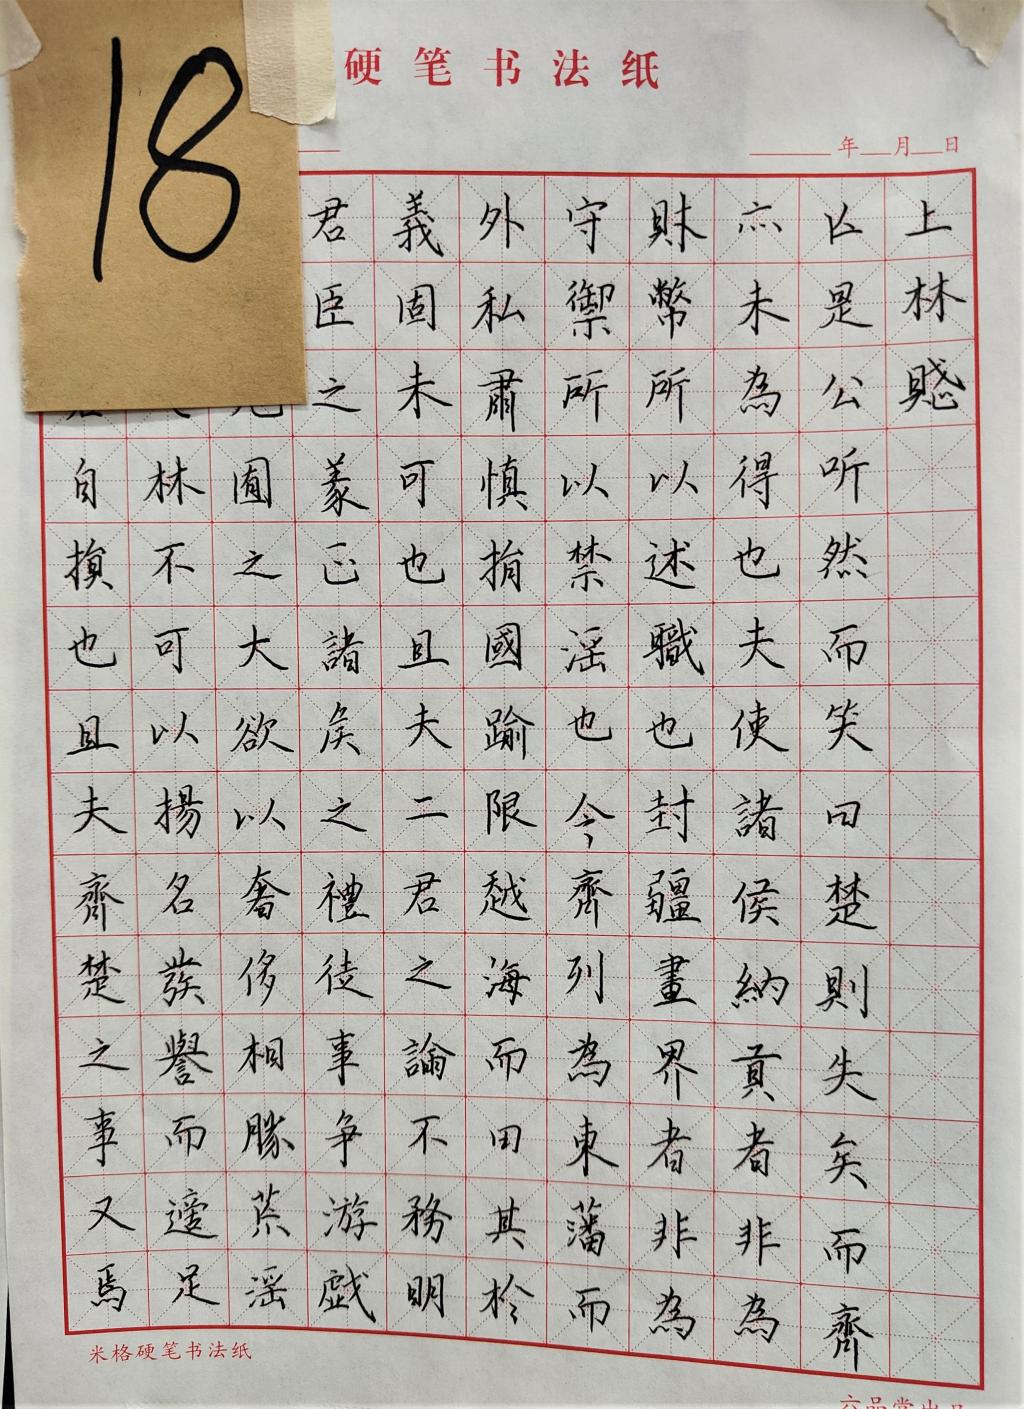 18
硬笔书法纸
年 月 日
上林賦
亡是公听然而笑曰楚則失矣而齊
亦未為得也夫使諸侯納貢者非為
財幣所以述職也封疆畫界者非為
守禦所以禁淫也今齊列為東藩而
外私肅慎捐國踰限越海而田其於
義固未可也且夫二君之論不務明
君臣之義正諸侯之禮徒事争游戲
囿之大欲以奢侈相勝荒淫
林不可以揚名發譽而適足
自損也且夫齊楚之事又焉
米格硬笔书法纸